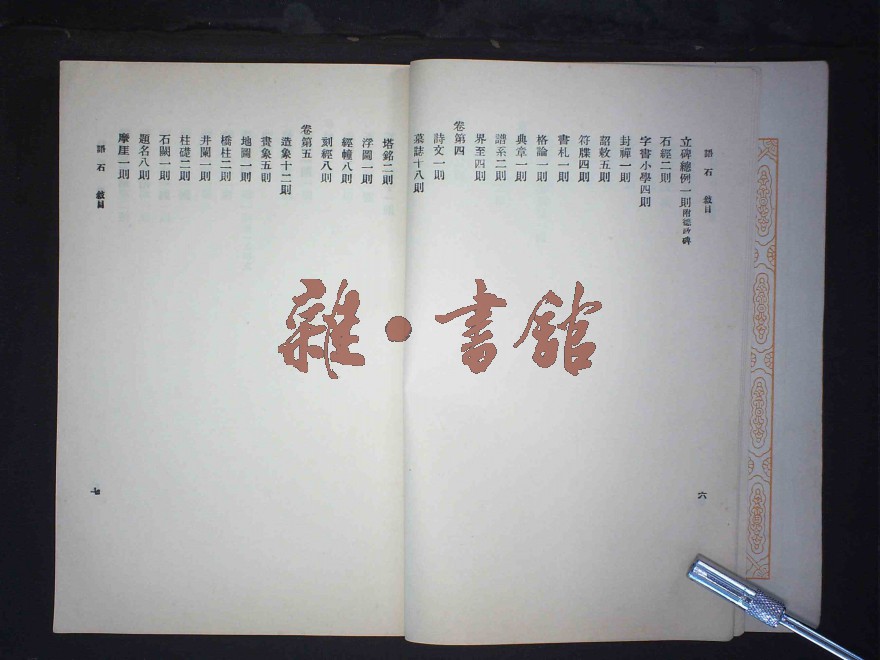 語石　敘目
立碑總例一則附德政碑
石經二則
字書小學四則
封禪一則
詔敕五則
符牒四則
書札一則
格論一則
典章一則
譜系二則
界至四則
卷第四
詩文一則
墓誌十八則
六
塔銘二則
浮圖一則
經幢八則
刻經八則
卷第五
造象十二則
畫象五則
地圖一則
橋柱二則
井闌一則
柱礎二則
石闕一則
題名八則
摩厓一則
語石　敘目
七
雜·書館